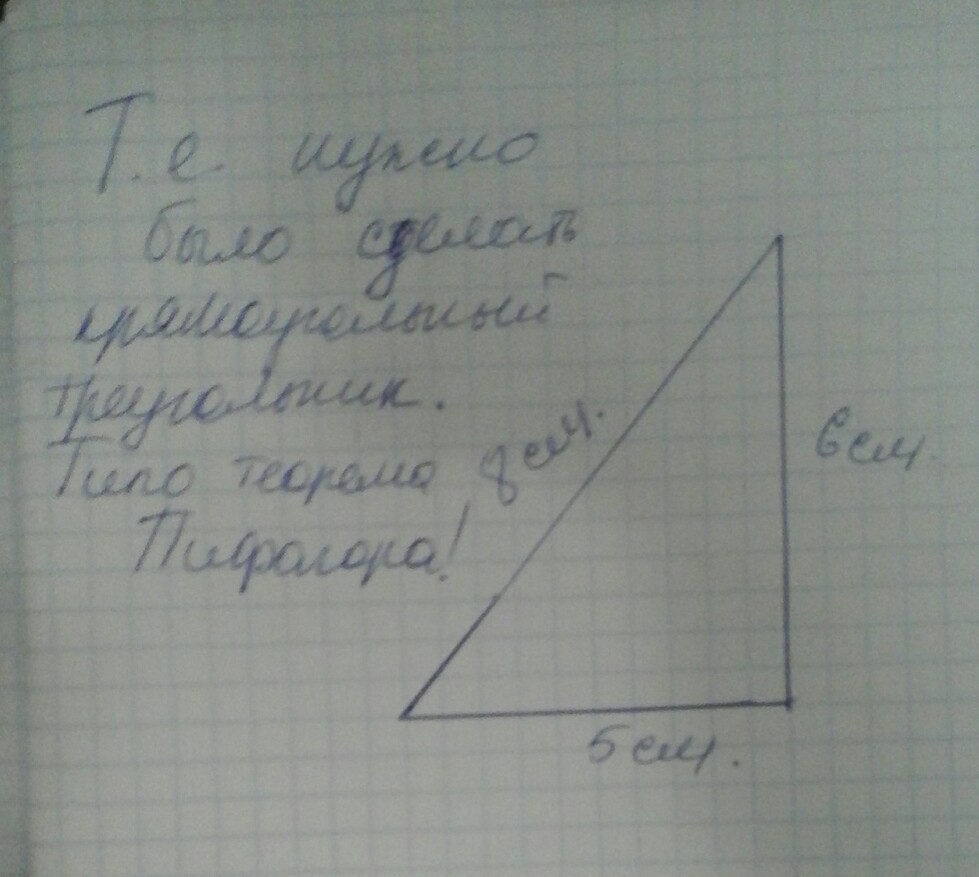 Т.е. нужно
было сделать
прямоугольный
треугольник.
Типо теорема
Пифагора!
8 см.
6 см.
5 см.